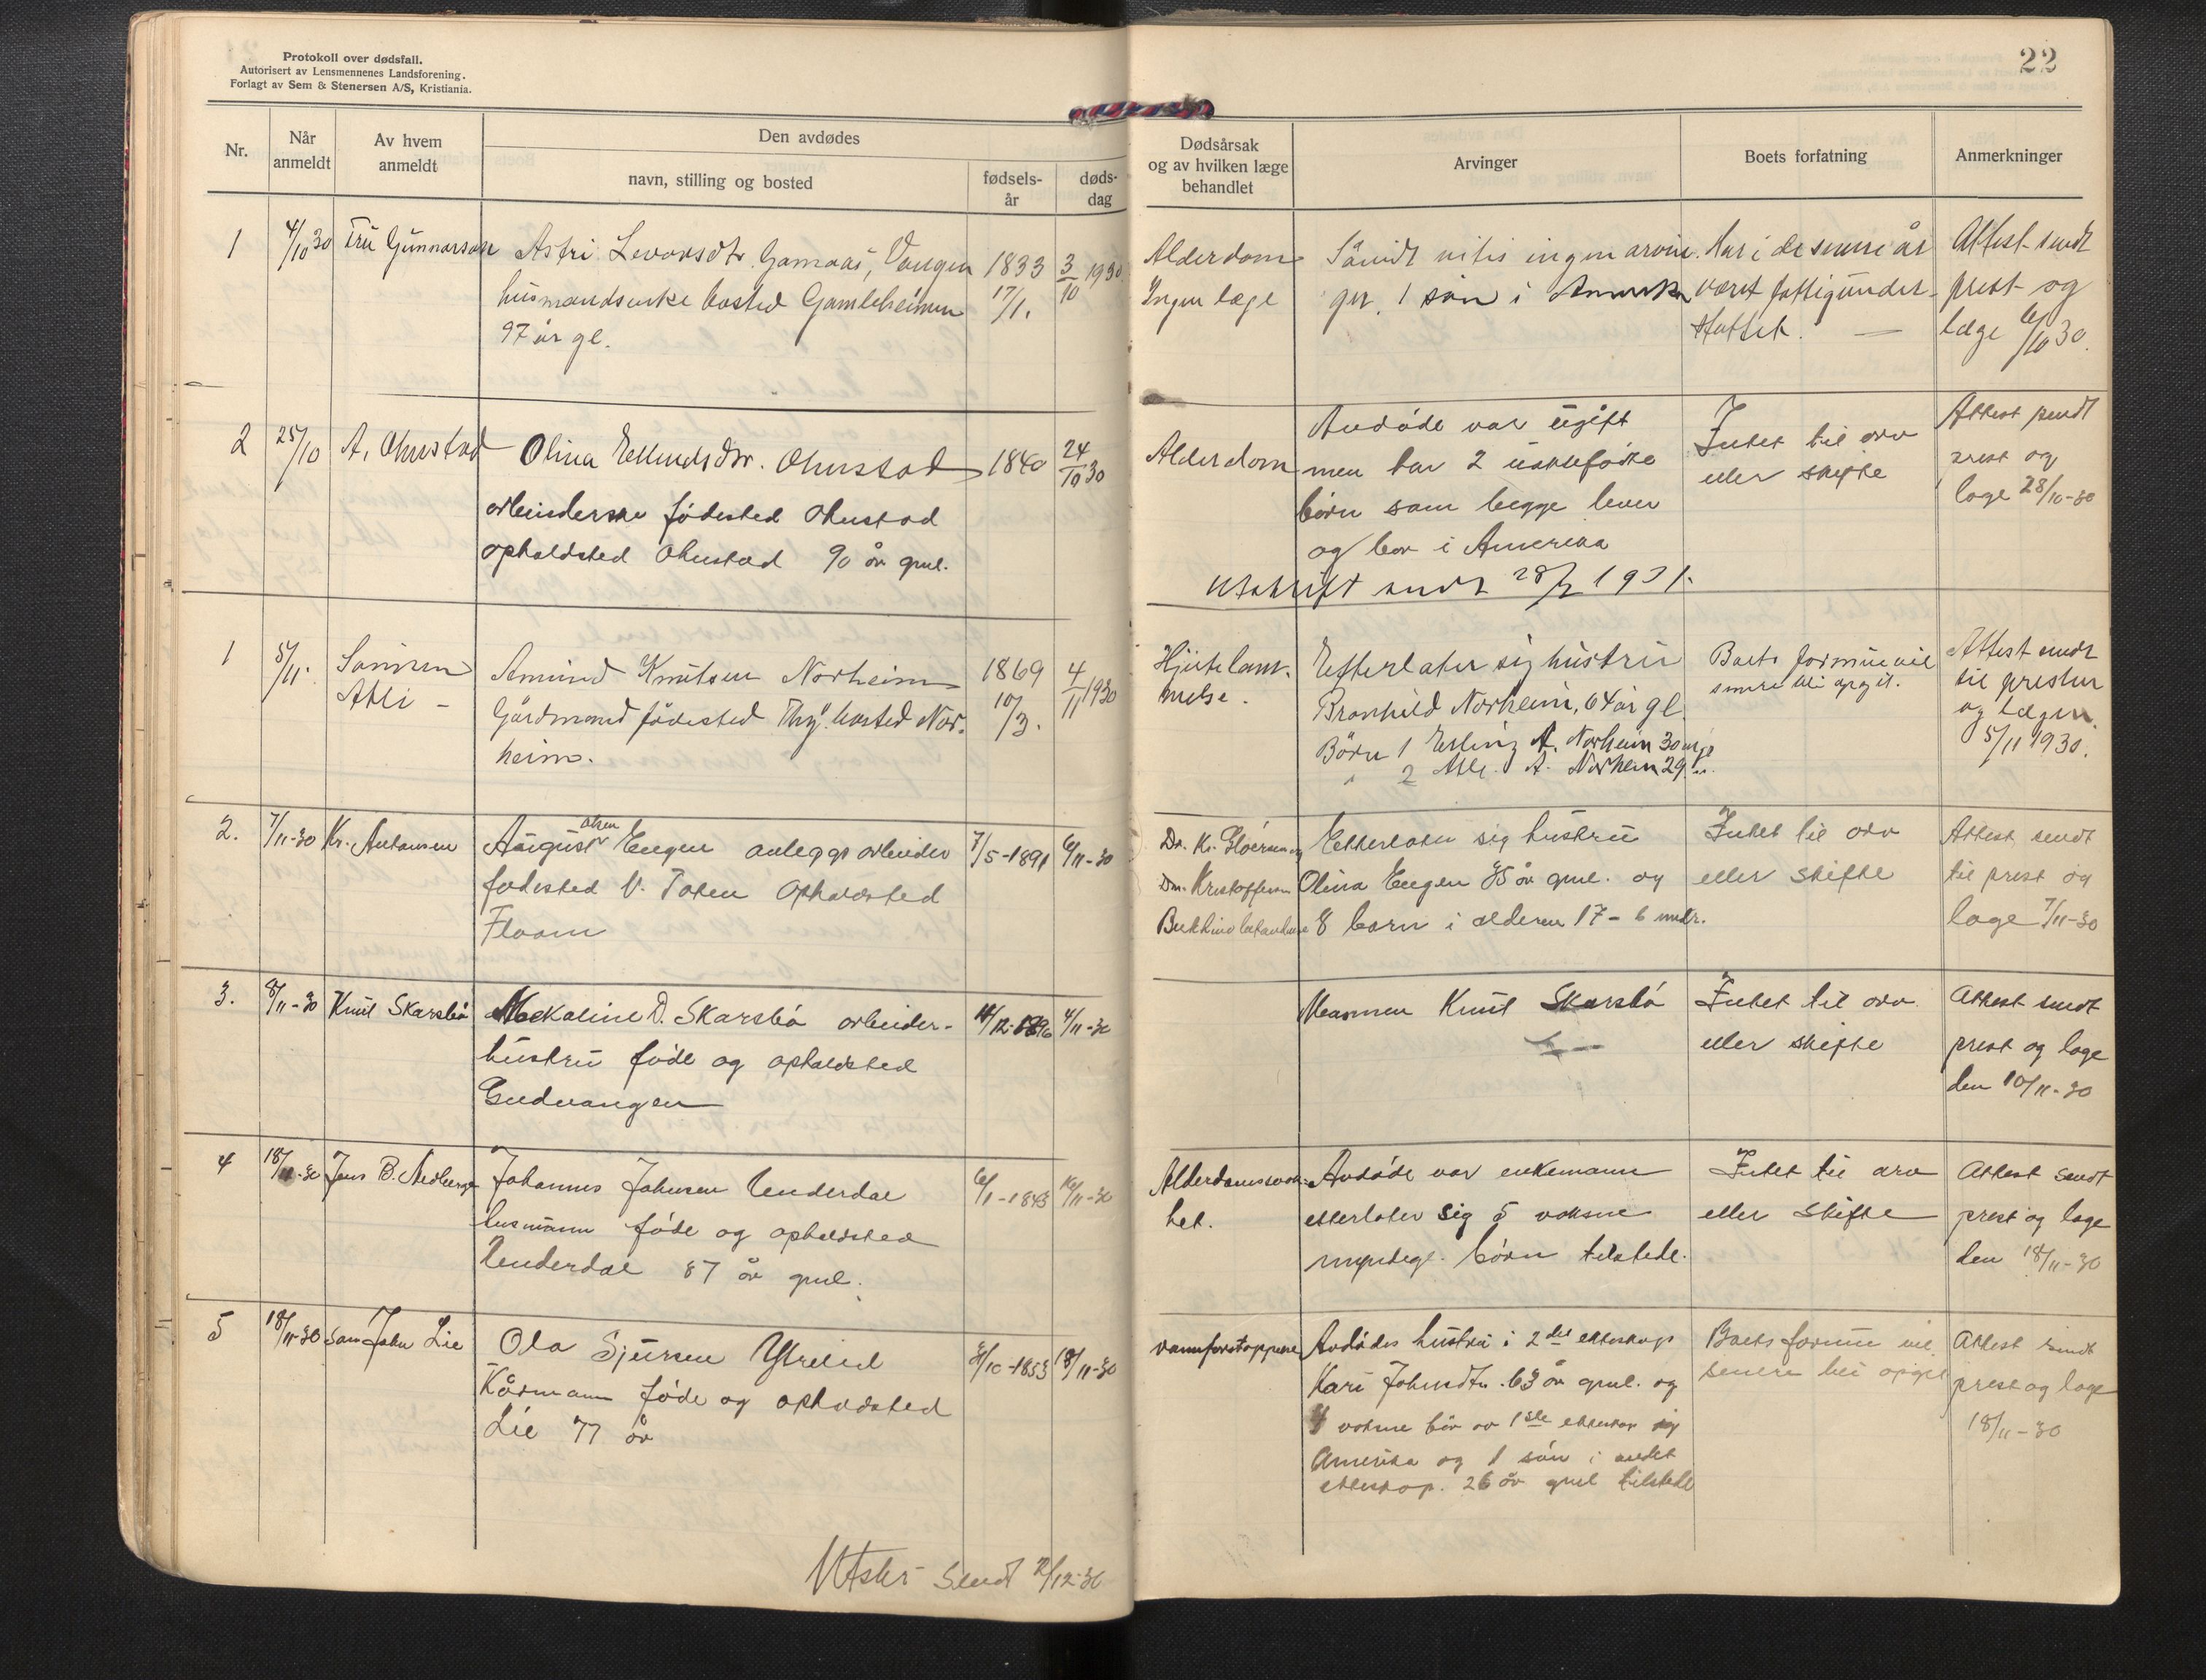 Protokoll over dødsfall.
Autorisert av Lensmennenes Landsforening.
Forlagt av Sem & Stenersen A/S, Kristiania.
22
Nr.
Når anmeldt
Av hvem anmeldt
Den avdødes
navn, stilling og bosted
fødsels-
år
døds-
dag
Dødsårsak
og av hvilken læge
behandlet
Arvinger
Boets forfatning
Anmerkninger
1
4/10 30
Fru Gunnarson
Astri Levorsdtr. Gamaas, Vangen
husmandsenke bosted Gamleheimen
97 år gl.
1833
17/1.
3/10 1930
Alderdom
Ingen læge
Såvidt vites ingen arvin-
ger. 1 sån i Amerika
Har i de senere år
været fattigunder-
støttet.
Attest sendt
prest og
læge 6/10 30.
2
25/10
A. Ohnstad
Olina Edlundsdtr. Ohnstad
arbeiderske fødested Ohnstad
opholdsted Ohnstad 90 år gml.
1840
24/10 30
Alderdom
Avdøde var ugift
men har 2 uektefødte
børn som begge lever
og bor i Amerika
Utskrift sendt 28/2 1931.
Intet til arv
eller skifte
Attest sendt
prest og
læge 28/10-30
1
5/11.
Sønnen
Atli -
Amund Knutsen Norheim
Gårdmand fødested Thy. bosted Nor-
heim.
1869
10/3.
4/11 1930
Hjertelam-
melse.
Efterlater sig hustru
Brønhild Norheim, 64 år gl.
Børn 1 Erling A. Norheim 30 år gl
" 2 Atli. A. Norheim 29 " ".
Boets formue vil
senere bli opgit.
Attest sendt
til presten
og lægen.
5/11 1930.
2.
7/11-30
Kr. Antonsen
August Olsen Engen anleggsarbeider
fødested V. Toten Opholdsted
Flaam
7/5-1891
6/11-30
Dr. Kr. Gløersen og
Dr. Kristoffersen
Etterlater sig hustru
Olina Engen 35 år gml. og
8 barn i alderen 17 - 6 mndr.
Intet til arv
eller skifte
Attest sendt
til prest og
læge 7/11-30
3.
8/11-30
Knut Skarsbø
D. Skarsbø arbeider-
hustru føde og opholdsted
Gudvangen
4/11-30
Mannen Knut Skarsbø
Intet til arv
eller skifte
Attest sendt
prest og læge
den 10/11-30
4
18/11-30
Jens B.
Johannes Johnsen Underdal
husmann føde og opholdsted
Underdal 87 år gml.
6/1-1843
16/11-30
Alderdomssvak-
het.
Avdøde var enkemann
etterlater sig 5 voksne
myndige børn tilstede.
Intet til arv
eller skifte
Attest sendt
prest og læge
den 18/11-30
5
18/11-30
John Lie
Ola Sjursen Ytrelid
Kårmann føde og opholdsted
Lie 77 år
/10-1853
18/11-30
vannforstoppelse
Avdødes hustru i 2det ekteskap
Kari Johnsdtr. 63 år gml. og
4 voksne bør av 1ste ekteskap
Amerika og 1 søn i andet
ekteskap. 26 år gml tilstede
Boets formue vil
senere bli opgit
Attest sendt
prest og læge
18/11-30
Utskr sendt 2/12-30